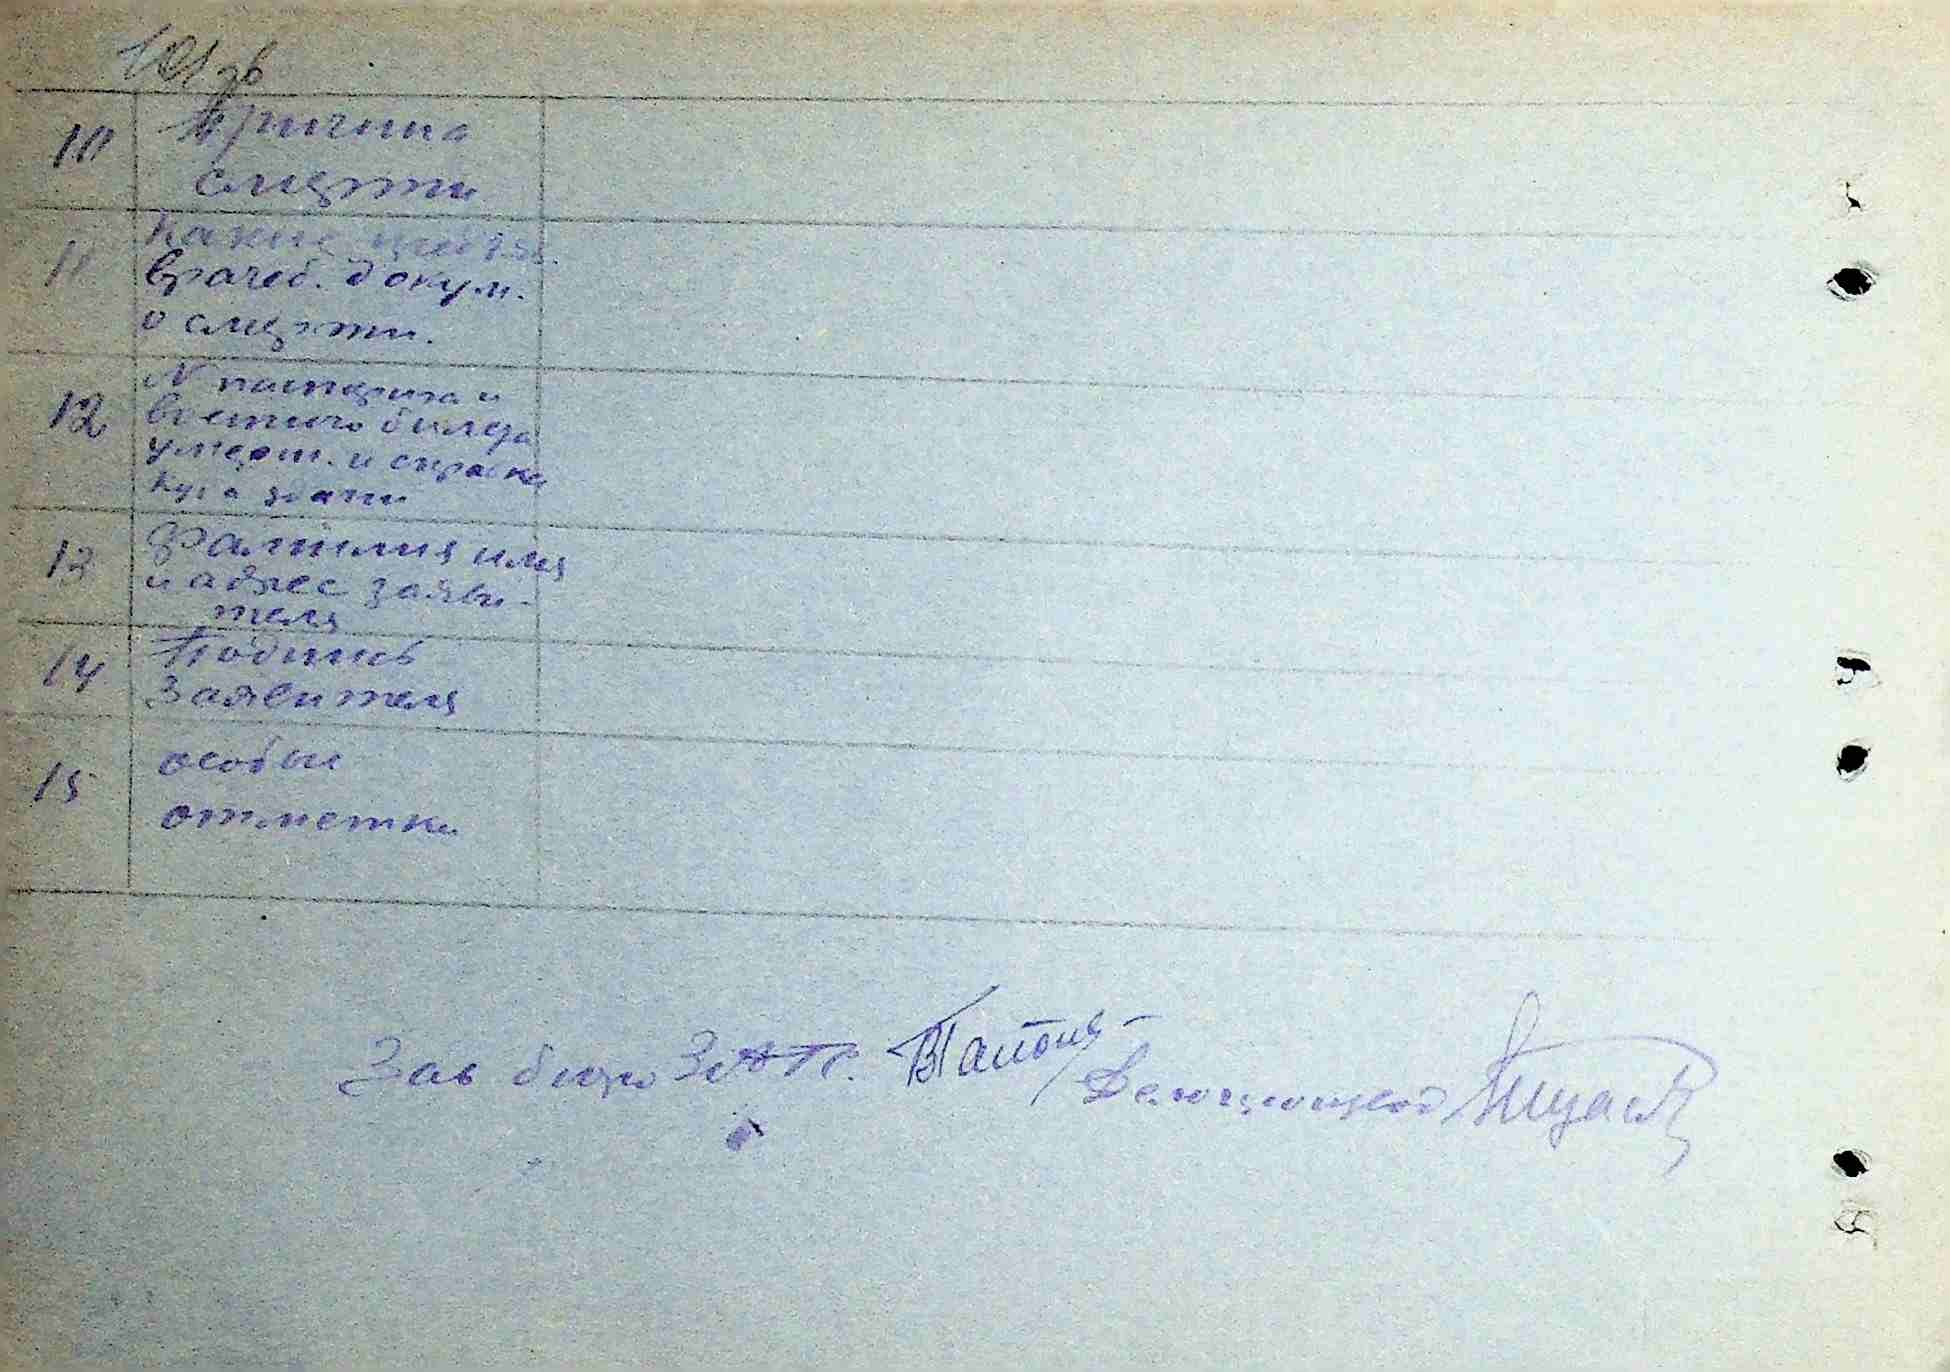 101 об
10 Причина
смерти
11 Какие предъяв.
врачеб. докум.
о смерти.
12 N паспорта и
военого билета
умерш. и справка
куда здани
13 Фамилия имя
и адрес заяви-
теля
14 Подпись
Заявителя
15 особые
отметки
Зав бюро ЗАГС.
Делопроизвод